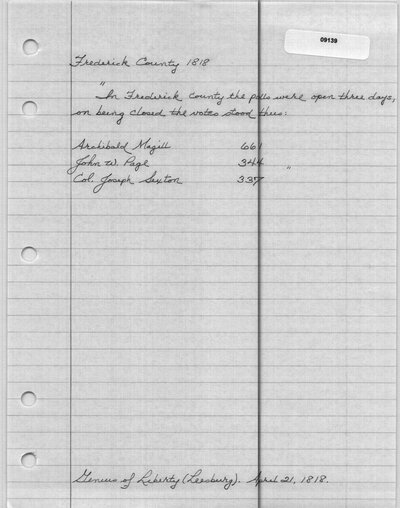 09139
Frederick County 1818
"
In Frederick County the polls were open three days,
on being closed the votes stood thus:
Archibald Magill 661
John W. Page 344 "
Col. Joseph Sexton 337
Genius of Liberty (Leesburg). April 21, 1818.